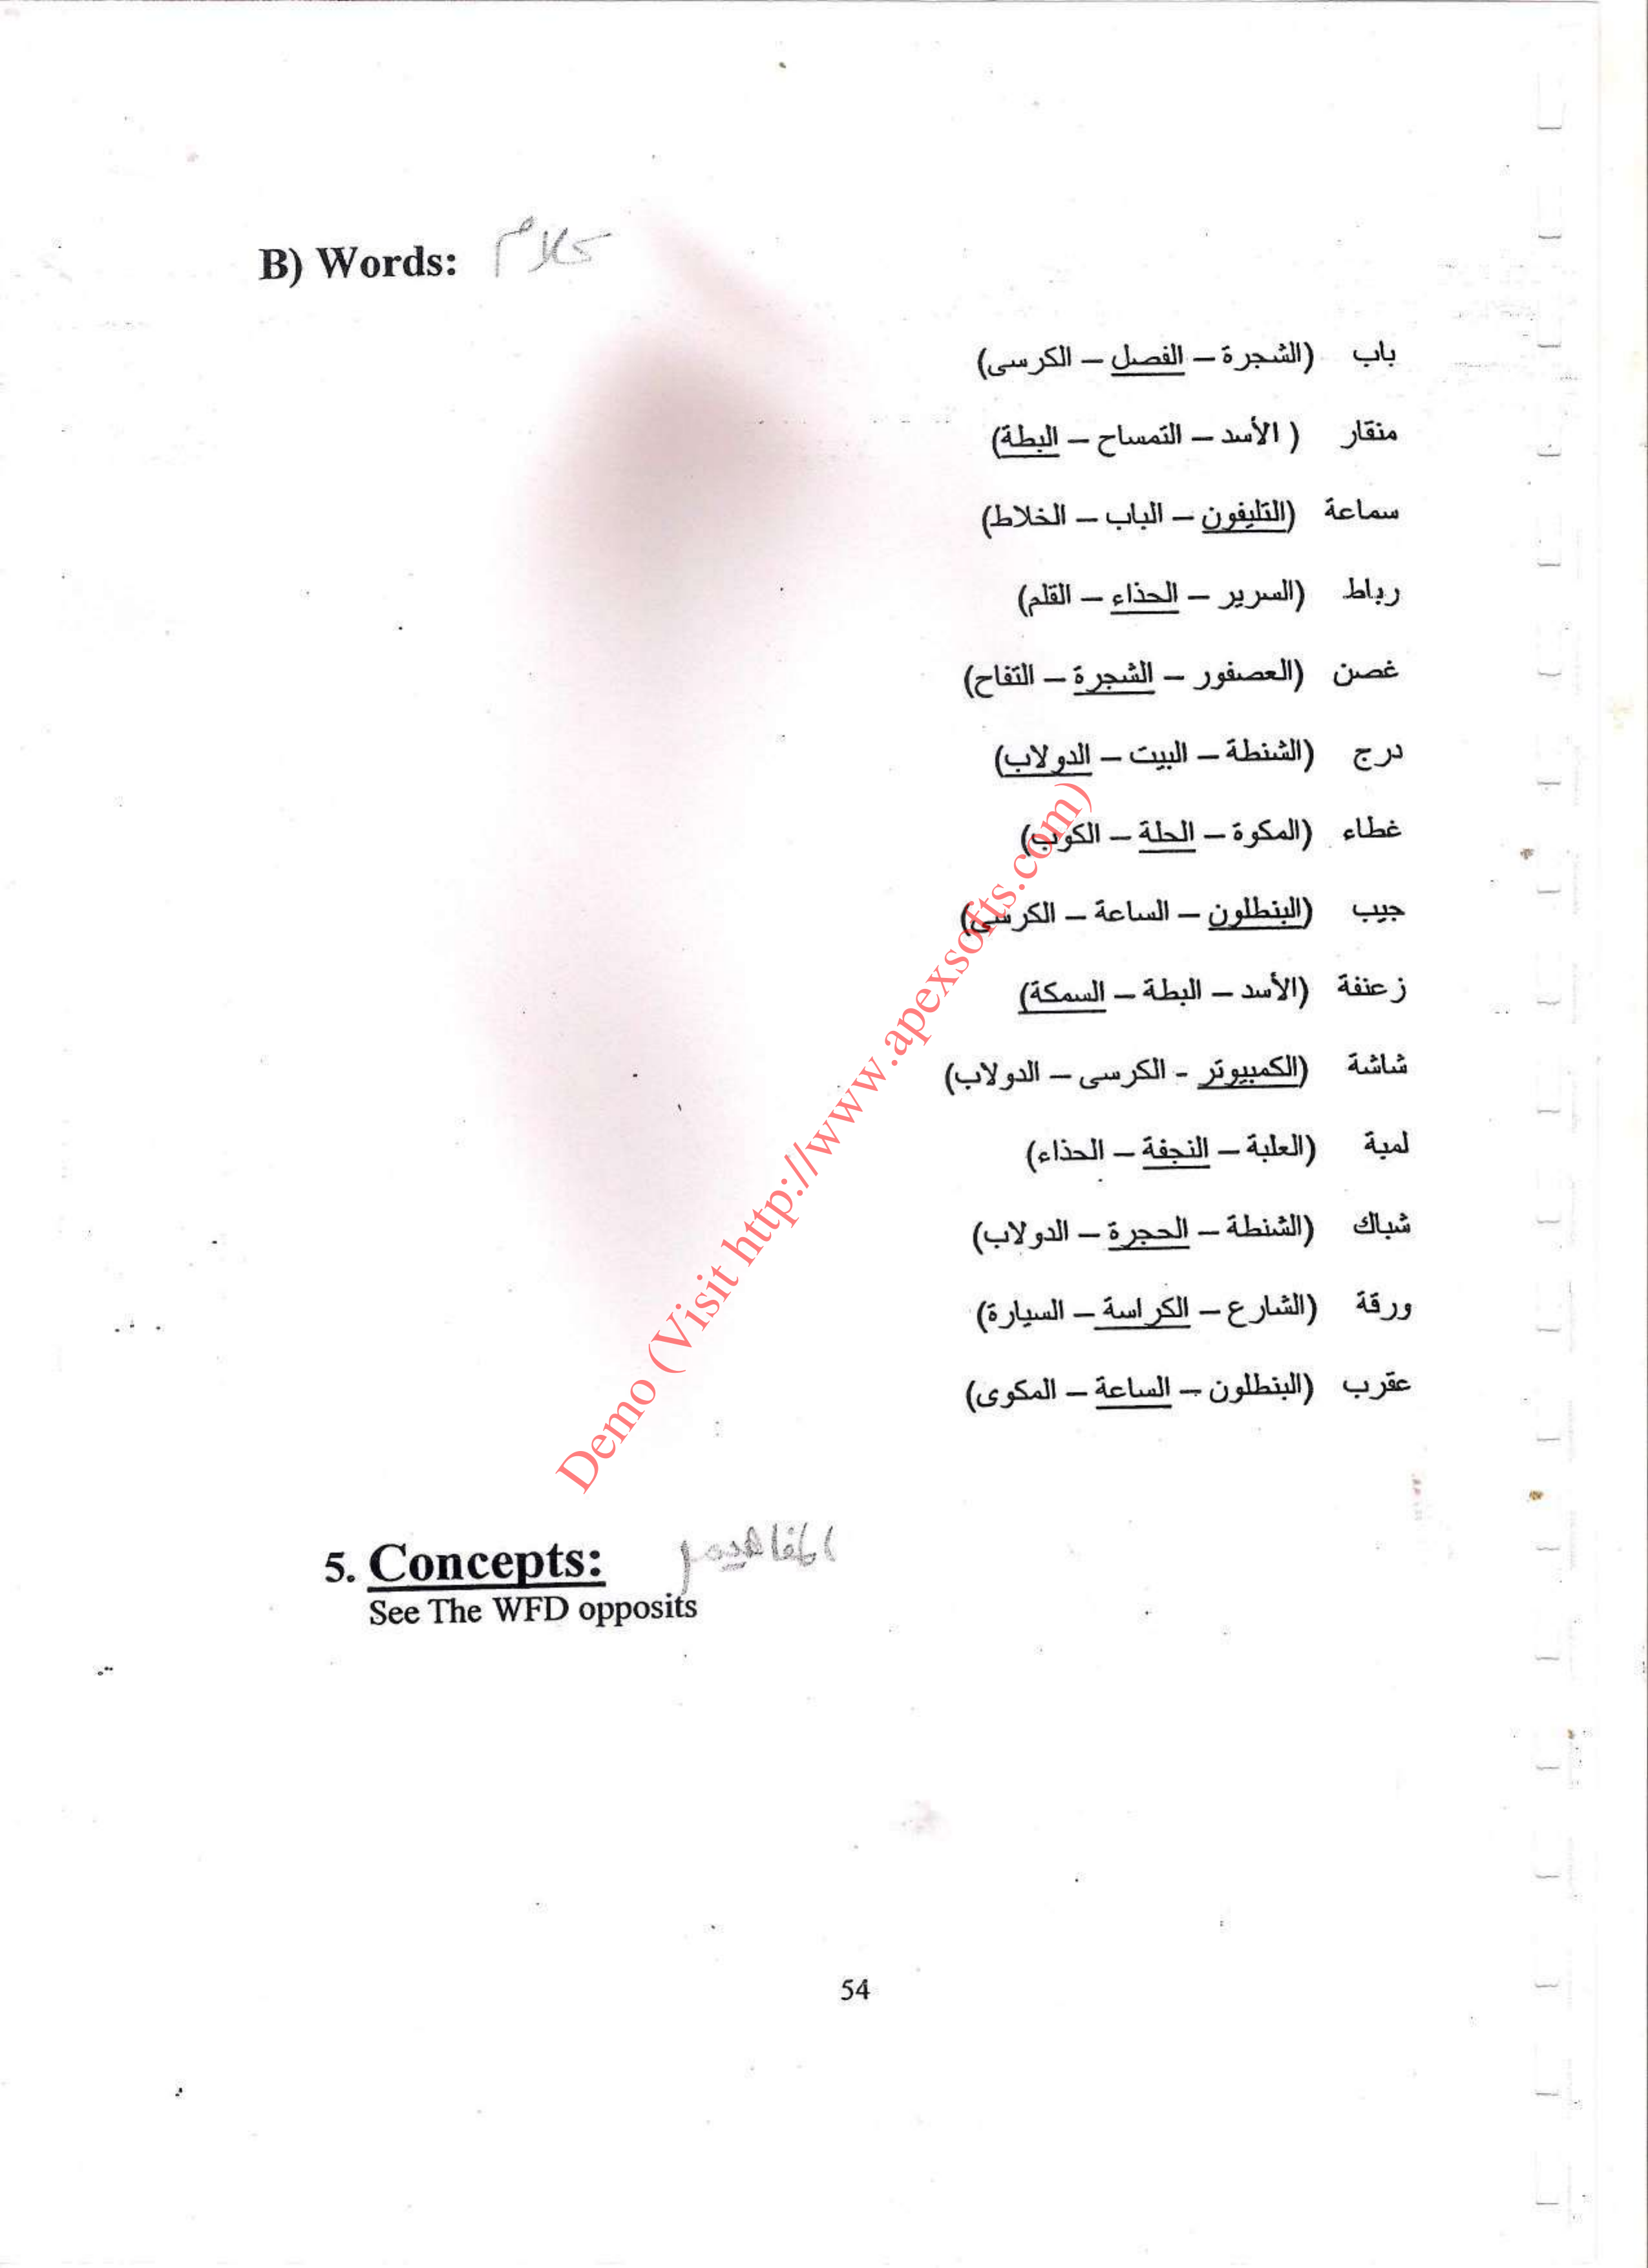 B) Words: كلام
باب (الشجرة – الفصل – الكرسى)
منقار ( الأسد – التمساح – البطة)
سماعة (التليفون – الباب – الخلاط)
رباط (السرير – الحذاء – القلم)
غصن (العصفور – الشجرة – التفاح)
درج (الشنطة – البيت – الدولاب)
غطاء (المكوة – الحلة – الكوب)
جيب (البنطلون – الساعة – الكرسى)
زعنفة (الأسد – البطة – السمكة)
شاشة (الكمبيوتر - الكرسى – الدولاب)
لمبة (العلبة – النجفة – الحذاء)
شباك (الشنطة – الحجرة – الدولاب)
ورقة (الشارع – الكراسة – السيارة)
عقرب (البنطلون – الساعة – المكوى)
Demo (Visit http://www.apexsofts.com)
5. Concepts: المفاهيم
See The WFD opposits
54